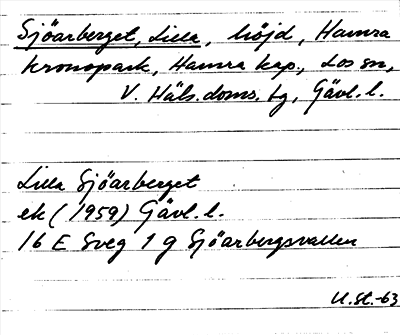 Sjöarberget, Lilla, höjd, Hamra
kronopark, Hamra kap., Los sn,
V. Häls. doms. tg, Gävl. l.
Lilla Sjöarberget
ek (1959) Gävl. l.
16 E Sveg 1 g Sjöarbergsvallen
U.St.-63